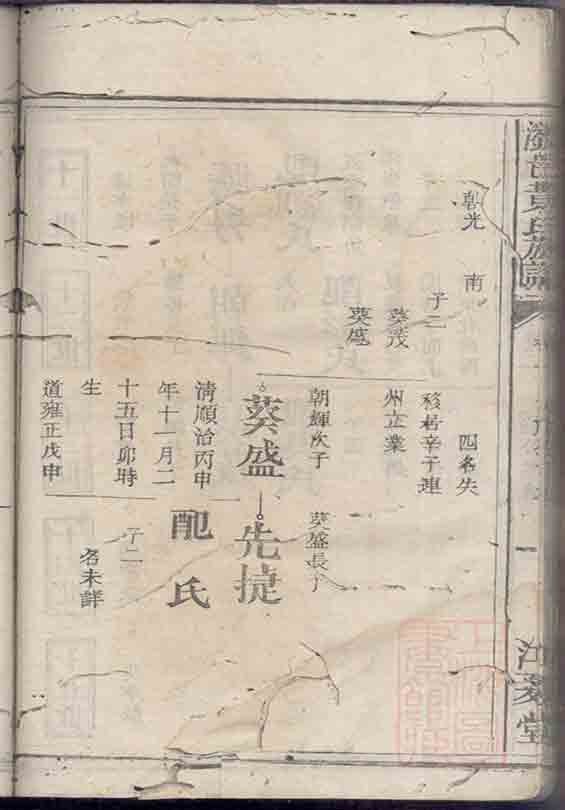 邑黃氏族譜
江夏堂
朝光
南
子二
葵茂
葵盛
四名失
移居辛子連
州立業
朝輝次子
葵盛
清順治丙申
年十一月二
十五日卯時
生
道雍正戊申
葵盛長子
先捷
配氏
子二
名未詳